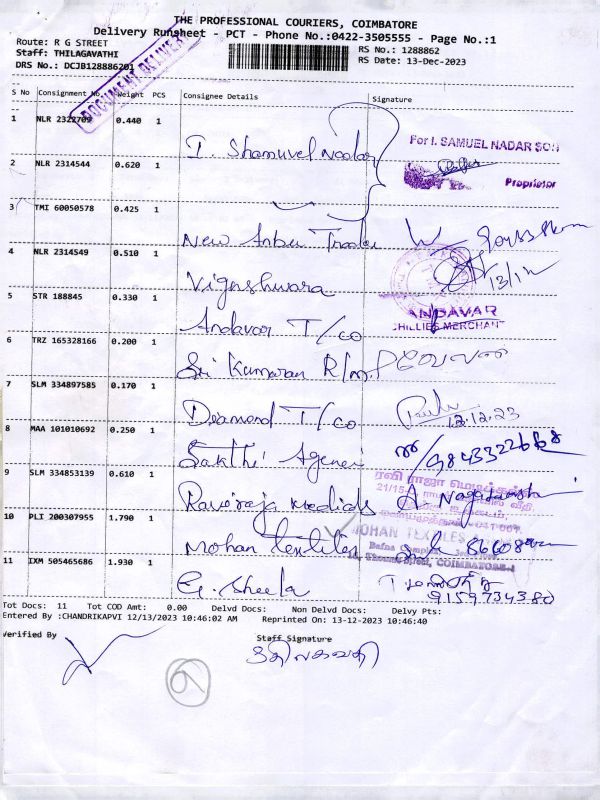 THE PROFESSIONAL COURIERS, COIMBATORE
Delivery Runsheet - PCT - Phone No.:0422-3505555 - Page No.:1
Route: R G STREET
RS No.: 1288862
Staff: THILAGAVATHI
RS Date: 13-Dec-2023
DRS No.: DCJB128886201
DOCUMENT DELIVER
S No Consignment No. Weight PCS Consignee Details Signature
1 NLR 2322709 0.440 1
I. Shamuvel Nadar
For I. SAMUEL NADAR SON
Proprietor
2 NLR 2314544 0.620 1
3 TMI 60050578 0.425 1
New Anbu
4 NLR 2314549 0.510 1
Vigneshwara
13/12
5 STR 188845 0.330 1
Andavar T/co
ANDAVAR
CHILLIES MERCHANT
6 TRZ 165328166 0.200 1
Sri Kumaran R/m.
வேலன்
7 SLM 334897585 0.170 1
Diamond T/co
12.12.23
8 MAA 101010692 0.250 1
Sakthi Agencies
9843322668
9 SLM 334853139 0.610 1
Raviraja Medicals
ரவி ராஜா மெடிக்கல்
10 PLI 200307955 1.790 1
Mohan textiles
MOHAN TEXTILES
COIMBATORE-1
11 IXM 505465686 1.930 1
G. Sheela
9159734380
Tot Docs: 11 Tot COD Amt: 0.00 Delvd Docs: Non Delvd Docs: Delvy Pts:
Entered By :CHANDRIKAPVI 12/13/2023 10:46:02 AM Reprinted On: 13-12-2023 10:46:40
Verified By
Staff Signature
திலகவதி